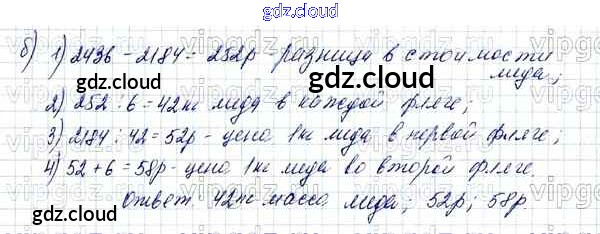 gdz.cloud
б) 1) 2436 - 2184 = 252р - разница в стоимости
мёда;
2) 252 : 6 = 42кг мёда в каждой фляге;
3) 2184 : 42 = 52р - цена 1кг мёда в первой фляге;
4) 52 + 6 = 58р - цена 1кг мёда во второй фляге.
Ответ: 42кг масса мёда; 52р; 58р.
gdz.cloud
gdz.cloud
gdz.cloud
gdz.cloud
gdz.cloud
gdz.cloud